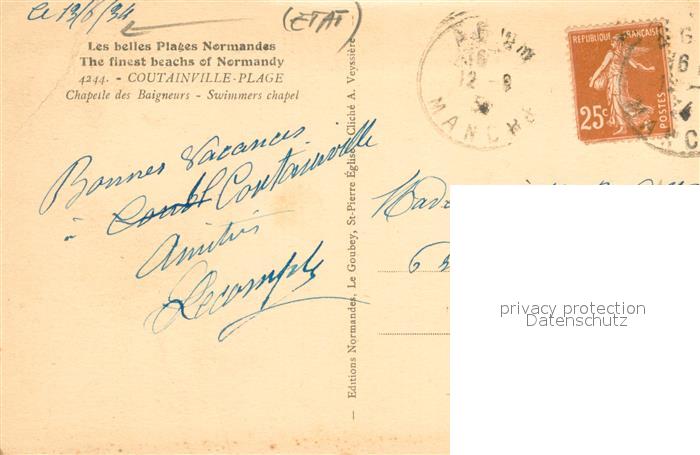 Le 13/8/34
(ETAT)
Les belles Plages Normandes
The finest beachs of Normandy
4244. - COUTAINVILLE-PLAGE
Chapelle des Baigneurs - Swimmers chapel
Bonnes Vacances
à Coutainville
Amitiés
Lecomple
— Editions Normandes, Le Goubey, St-Pierre Église (Cliché A. Veyssière)
16
12 - 8
34
MANCHE
REPUBLIQUE FRANÇAISE
25c
POSTES
16
Mad
privacy protection
Datenschutz